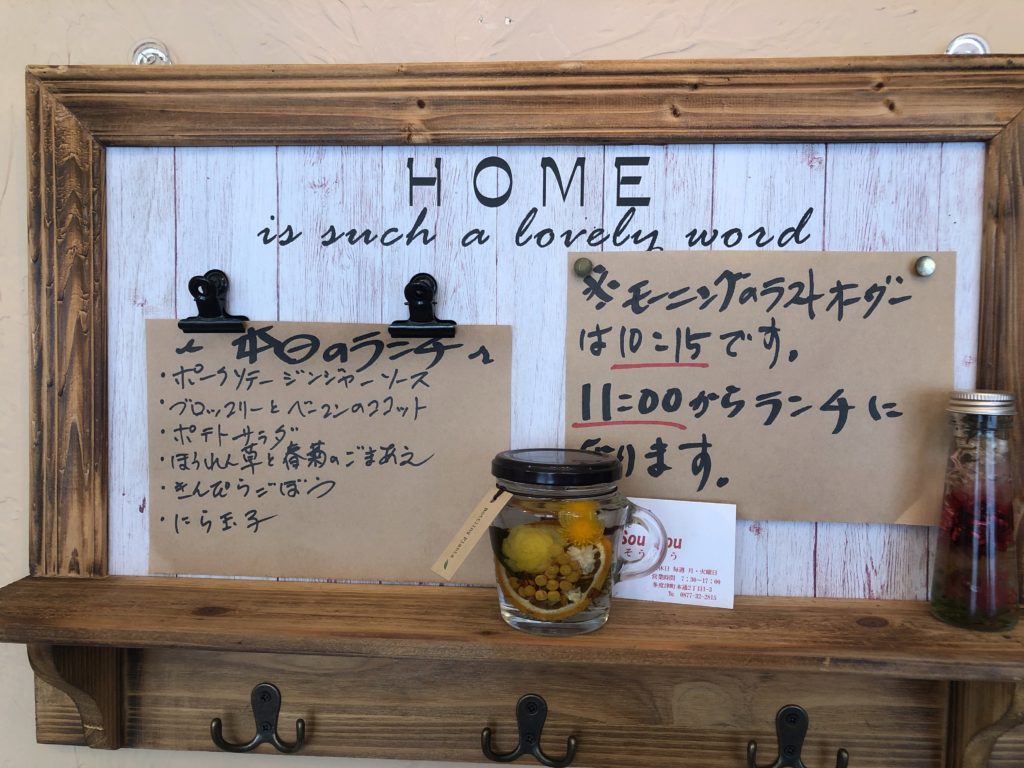 HOME
is such a lovely word
本日のランチ
・ポークソテージンジャーソース
・ブロッコリーとベーコンのココット
・ポテトサラダ
・ほうれん草と春菊のごまあえ
・きんぴらごぼう
・にら玉子
※モーニングのラストオーダー
は10:15です。
11:00からランチに
なります。
Sou Sou
そう う
休日 毎週 月・火曜日
営業時間 7:30~17:00
多度津町本通2丁目1-3
℡ 0877-32-2815